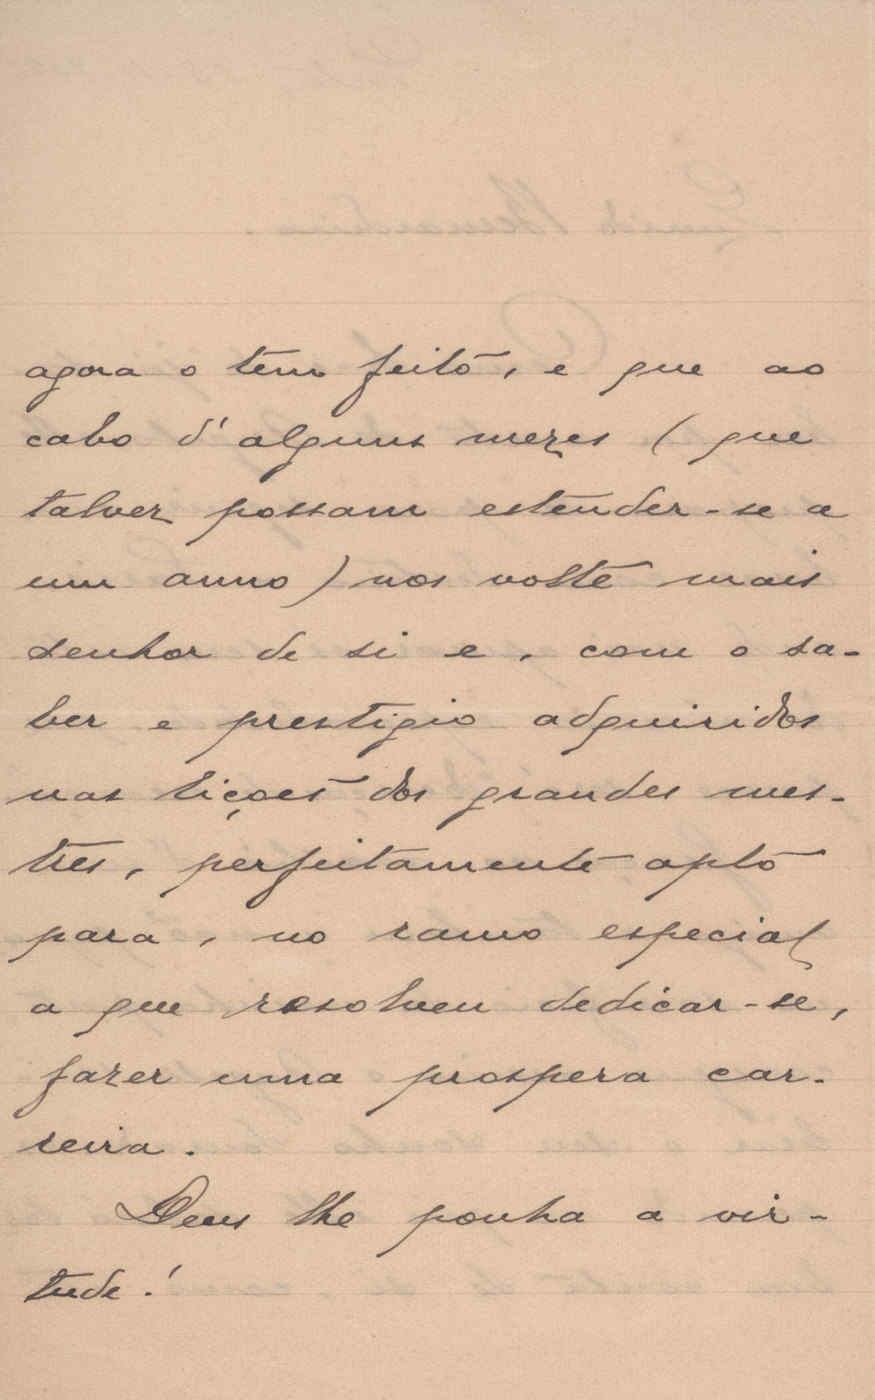 agora o tem feito, e que ao
cabo d'alguns mezes (que
talvez possam estender-se a
um anno) nos volte mais
senhor de si e, com o sa-
ber e prestigio adquiridos
nas liçoes dos grandes mes-
tres, perfeitamente apto
para, no ramo especial
a que resolveu dedicar-se,
fazer uma prospera car-
reira.
Deus lhe ponha a vir-
tude!